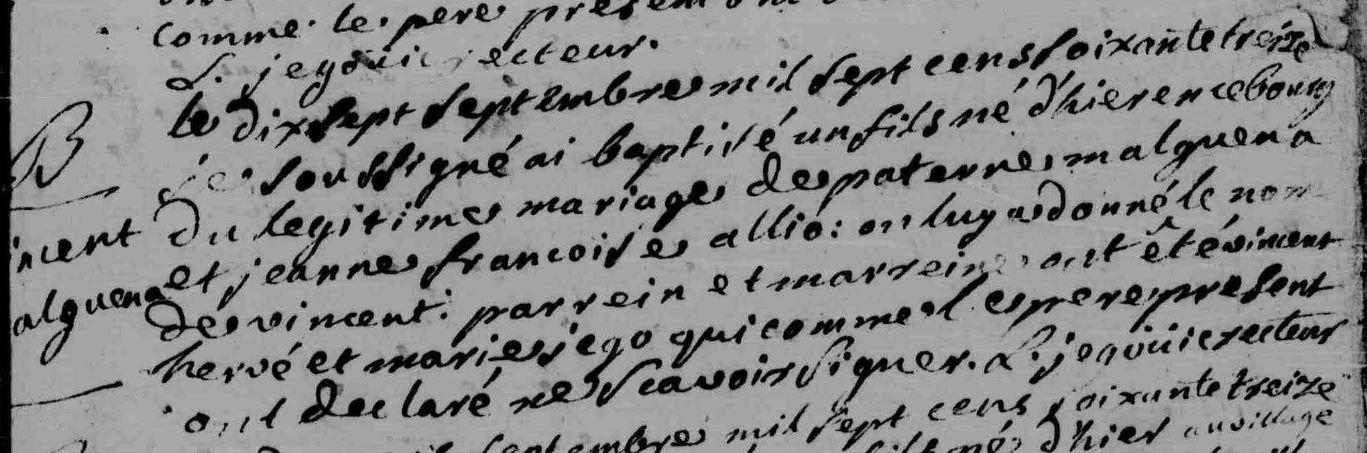 comme le pere present ont
L. jegoüic recteur.
le dixsept septembre mil sept cens soixante treize
B
je soussigné ai baptisé un fils né d'hier en ce bourg
du legitime mariage de paterne malguena
incent
et jeanne francoise allio: on luy a donné le nom
alguena
de vincent. parrein et marreine ont été vincent
hervé et marie jego qui comme le pere present
ont declaré ne scavoir signer. L. jegoüic recteur
septembre mil sept cens soixante treize
né d'hier au village